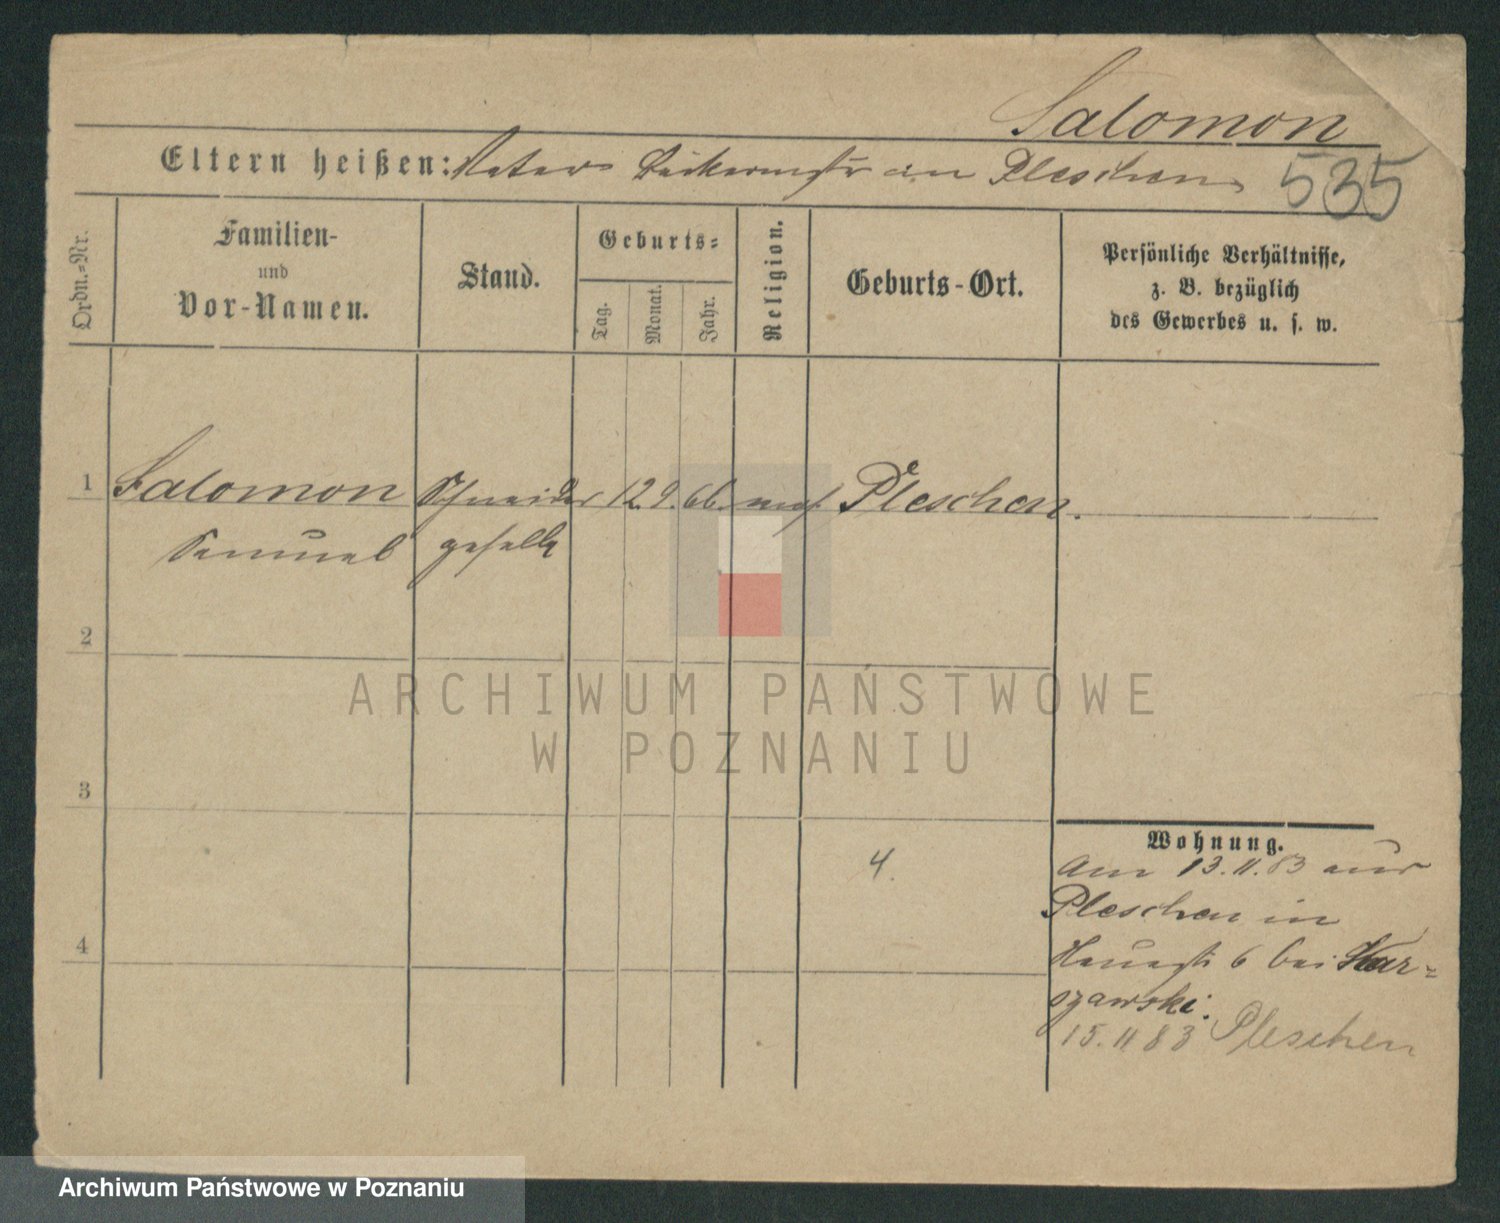 Salomon
Eltern heißen: Vater Bäckermstr in Pleschen
535
Ordn.-Nr.
Familien-
und
Vor-Namen.
Stand.
Geburts-
Tag.
Monat.
Jahr.
Religion.
Geburts-Ort.
Persönliche Verhältnisse,
z. B. bezüglich
des Gewerbes u. s. w.
1 Salomon Schneider 12. 9. 66. mos. Pleschen.
Samuel geselle
2
3
4
4.
Wohnung.
am 13.11.83 aus
Pleschen in
6 bei War-
szawski.
15. 11 83 Pleschen
ARCHIWUM PAŃSTWOWE
W POZNANIU
Archiwum Państwowe w Poznaniu